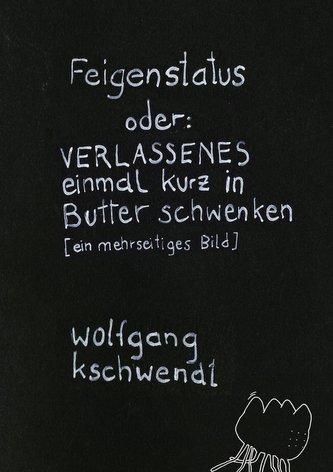 Feigenstatus
oder:
VERLASSENES
einmal kurz in
Butter schwenken
[ein mehrseitiges Bild]
wolfgang
kschwendt